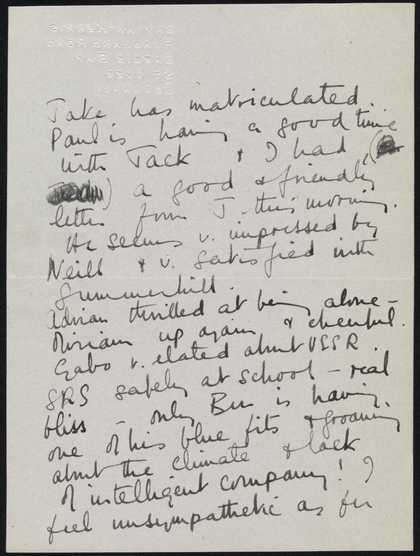 Jake has matriculated.
Paul is having a good time
with Jack & I had (a
) a good & friendly
letter from J. this morning.
He seems v. impressed by
Neill & v. satisfied with
Summerhill.
Adrian thrilled at being alone –
Miriam up again & cheerful.
Gabo v. elated about USSR.
SRS safely at school – real
bliss – only Ben is having
one of his blue fits & groaning
about the climate & lack
of intelligent company! I
feel unsympathetic as for